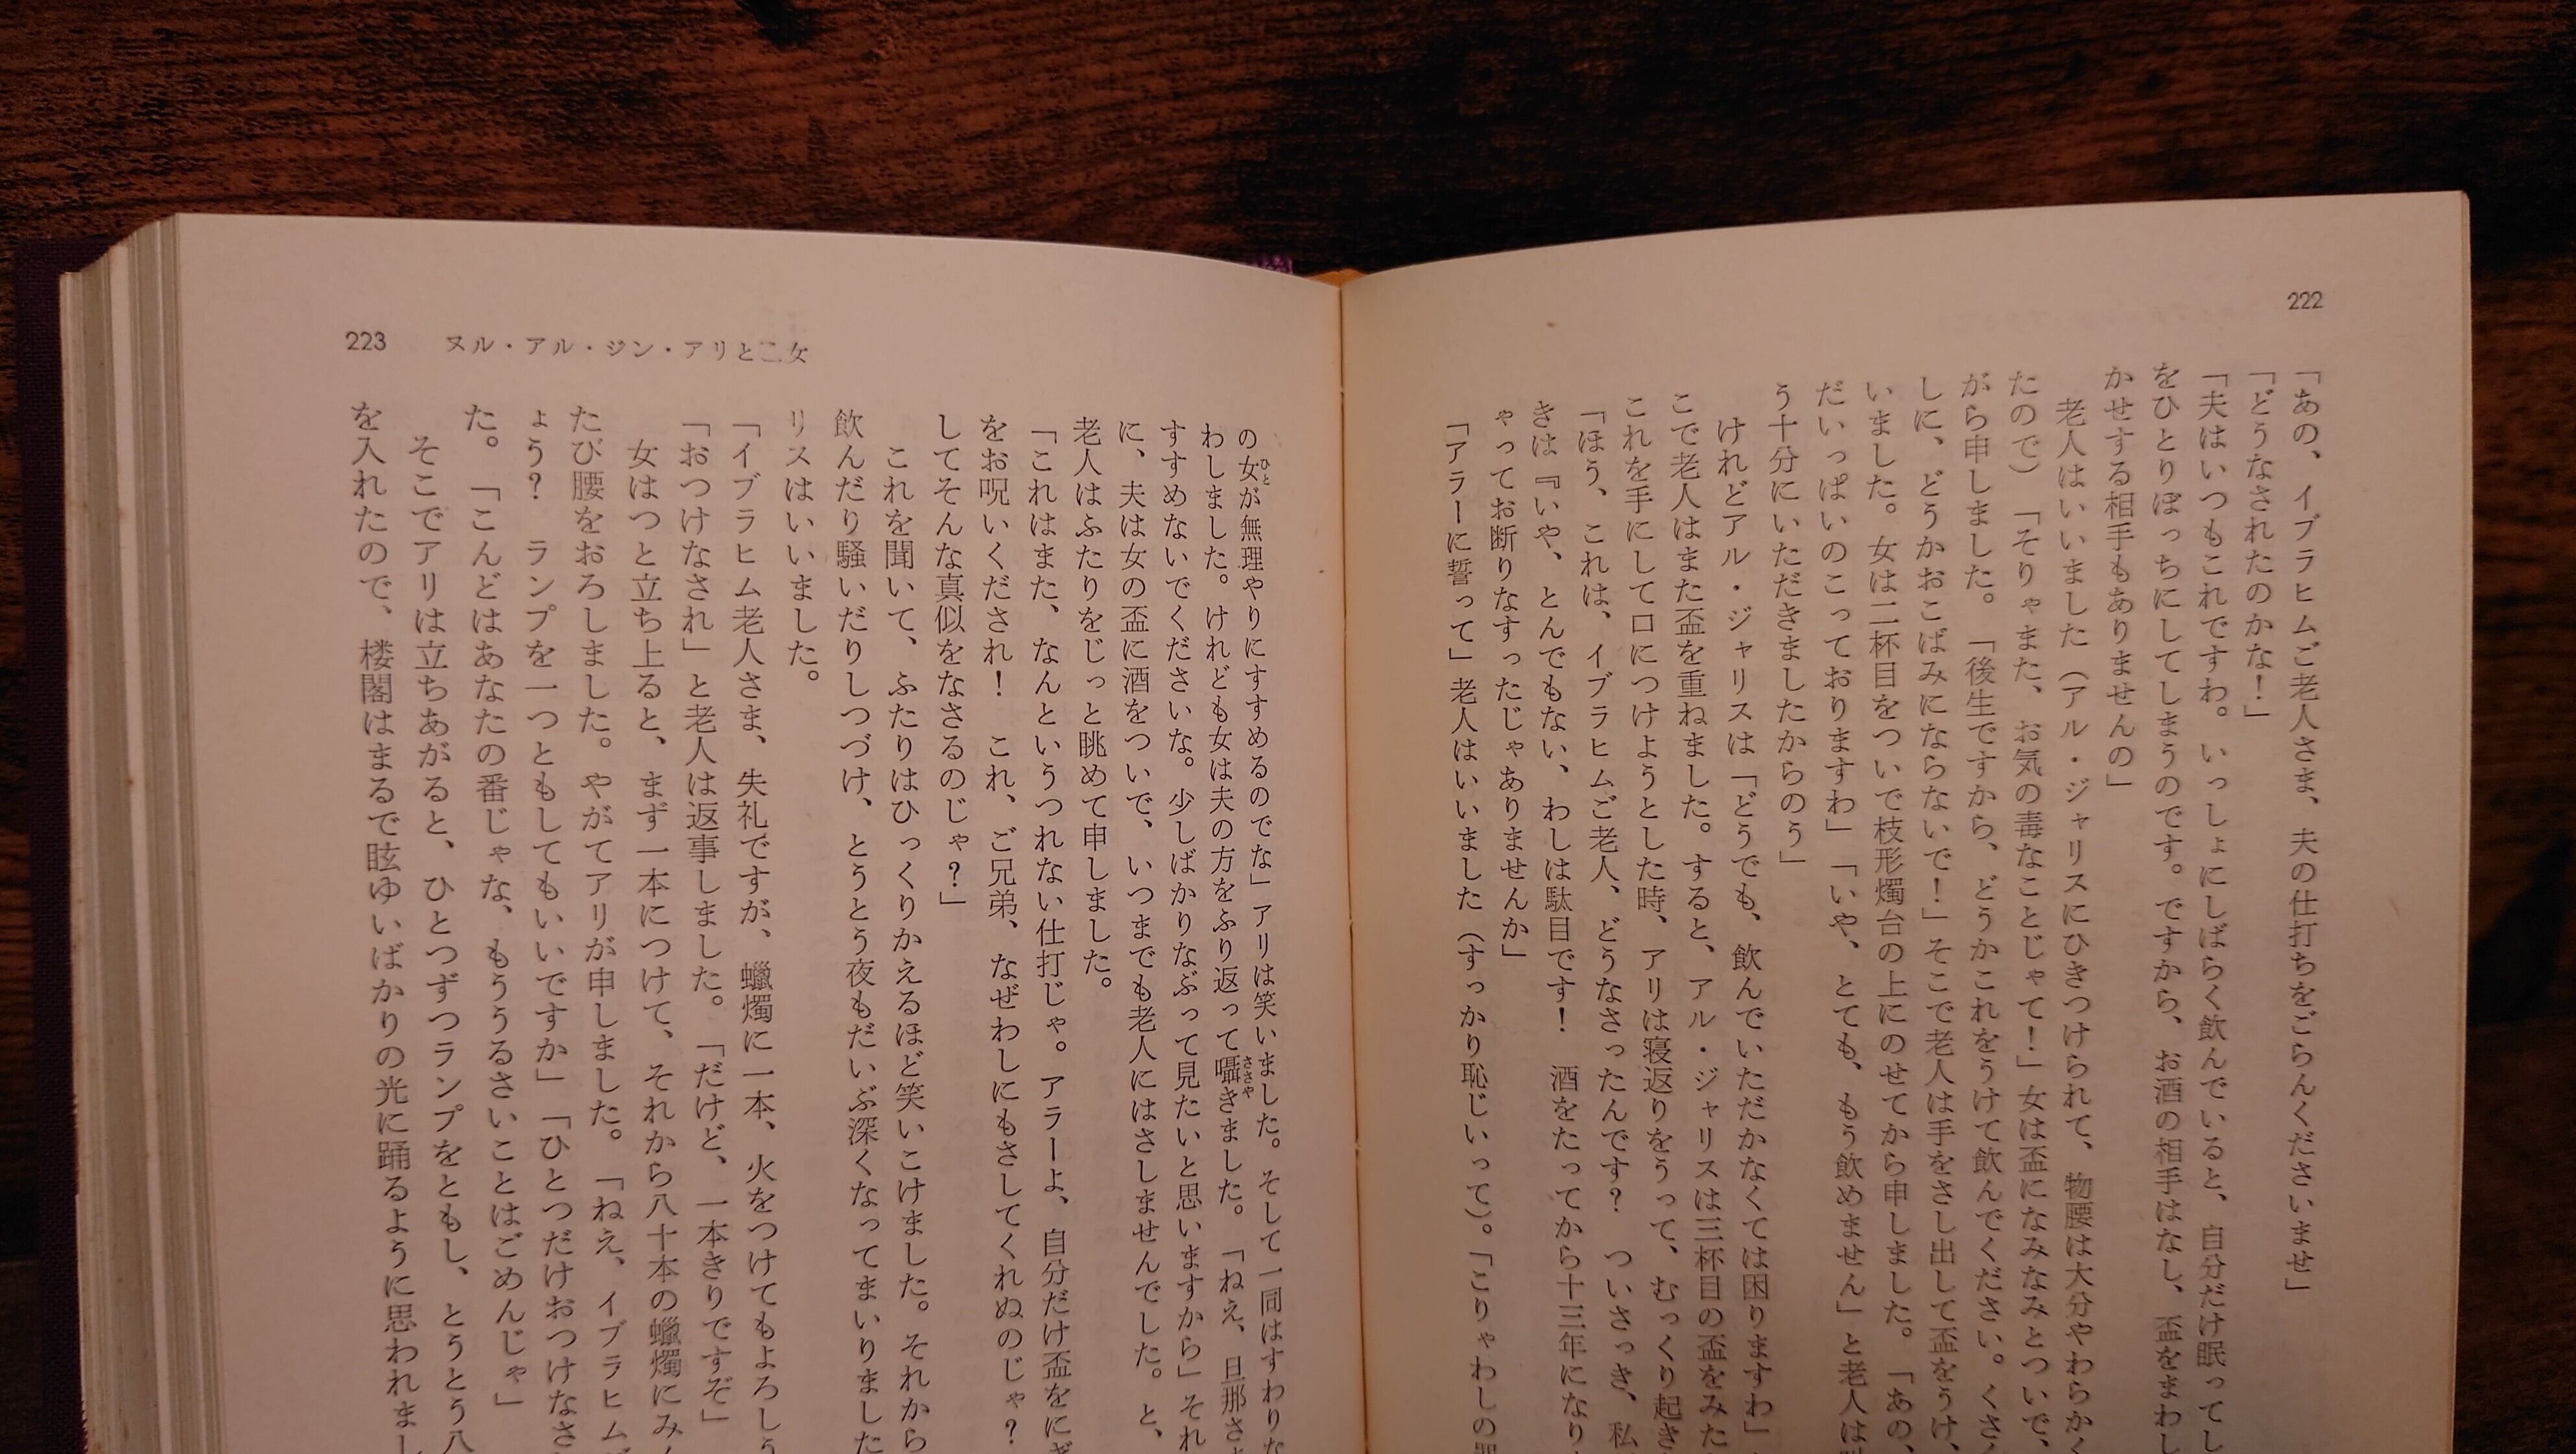 222
「あの、イブラヒムご老人さま、夫の仕打ちをごらんくださいませ」
「どうなされたのかな！」
「夫はいつもこれですわ。いっしょにしばらく飲んでいると、自分だけ眠ってし
をひとりぼっちにしてしまうのです。ですから、お酒の相手はなし、盃をまわし
かせする相手もありませんの」
老人はいいました（アル・ジャリスにひきつけられて、物腰は大分やわらかく
たので）「そりゃまた、お気の毒なことじゃて！」女は盃になみなみとついで、
がら申しました。「後生ですから、どうかこれをうけて飲んでください。くさ
しに、どうかおこばみにならないで！」そこで老人は手をさし出して盃をうけ、
いました。女は二杯目をついで枝形燭台の上にのせてから申しました。「あの、
だいっぱいのこっておりますわ」「いや、とても、もう飲めません」と老人は
う十分にいただきましたからのう」
けれどアル・ジャリスは「どうでも、飲んでいただかなくては困りますわ」
こで老人はまた盃を重ねました。すると、アル・ジャリスは三杯目の盃をみた
これを手にして口につけようとした時、アリは寝返りをうって、むっくり起き
「ほう、これは、イブラヒムご老人、どうなさったんです？　ついさっき、私
きは『いや、とんでもない、わしは駄目です！　酒をたってから十三年になり
ゃってお断りなすったじゃありませんか」
「アラーに誓って」老人はいいました（すっかり恥じいって）。「こりゃわしの
223 ヌル・アル・ジン・アリと乙女
の女が無理やりにすすめるのでな」アリは笑いました。そして一同はすわりな
ひと
わしました。けれども女は夫の方をふり返って囁きました。「ねえ、旦那さ
ささや
すすめないでくださいな。少しばかりなぶって見たいと思いますから」それ
に、夫は女の盃に酒をついで、いつまでも老人にはさしませんでした。と、
老人はふたりをじっと眺めて申しました。
「これはまた、なんというつれない仕打じゃ。アラーよ、自分だけ盃をにぎ
をお呪いくだされ！　これ、ご兄弟、なぜわしにもさしてくれぬのじゃ？
してそんな真似をなさるのじゃ？」
これを聞いて、ふたりはひっくりかえるほど笑いこけました。それから
飲んだり騒いだりしつづけ、とうとう夜もだいぶ深くなってまいりました
リスはいいました。
「イブラヒム老人さま、失礼ですが、蠟燭に一本、火をつけてもよろしう
「おつけなされ」と老人は返事しました。「だけど、一本きりですぞ」
女はつと立ち上ると、まず一本につけて、それから八十本の蠟燭にみ
たび腰をおろしました。やがてアリが申しました。「ねえ、イブラヒム
ょう？　ランプを一つともしてもいいですか」「ひとつだけおつけなさ
た。「こんどはあなたの番じゃな、もううるさいことはごめんじゃ」
そこでアリは立ちあがると、ひとつずつランプをともし、とうとう八
を入れたので、楼閣はまるで眩ゆいばかりの光に踊るように思われまし